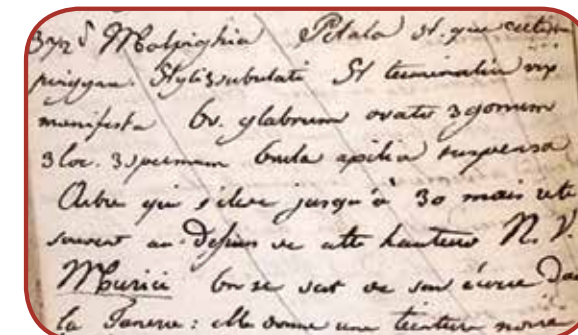 372 δ Malpighia Petala 5t. que
pinggan. Styli 3 subulati St terminalia vix
manifesta Ov. glabrum ovato 3gonum
3loc. 3spermum Ovula apilia suspensa
Arbre qui s'eleve jusqu'à 30 mais reste
souvent au-dessus de cette hauteur N. V.
Murici On se sert de son écorce Dans
la Tanerie: elle donne une teinture noire